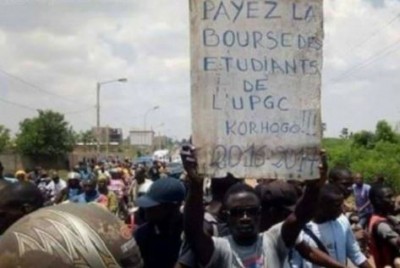 PAYEZ LA
BOURSE DES
ETUDIANTS
DE
L'UPGC
KORHOGO!!!
2016-2017